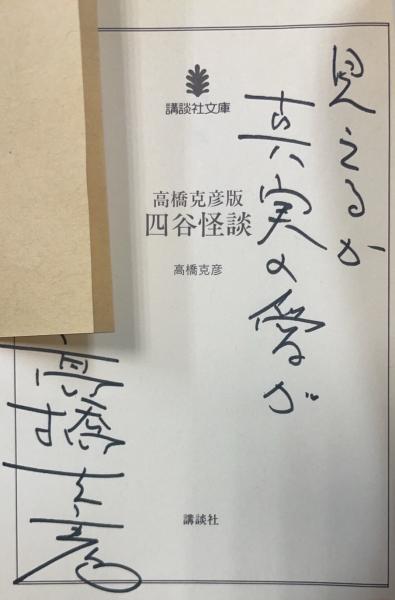 見えるか
真実の愛が
講談社文庫
高橋克彦版
四谷怪談
高橋克彦
高橋克彦
講談社